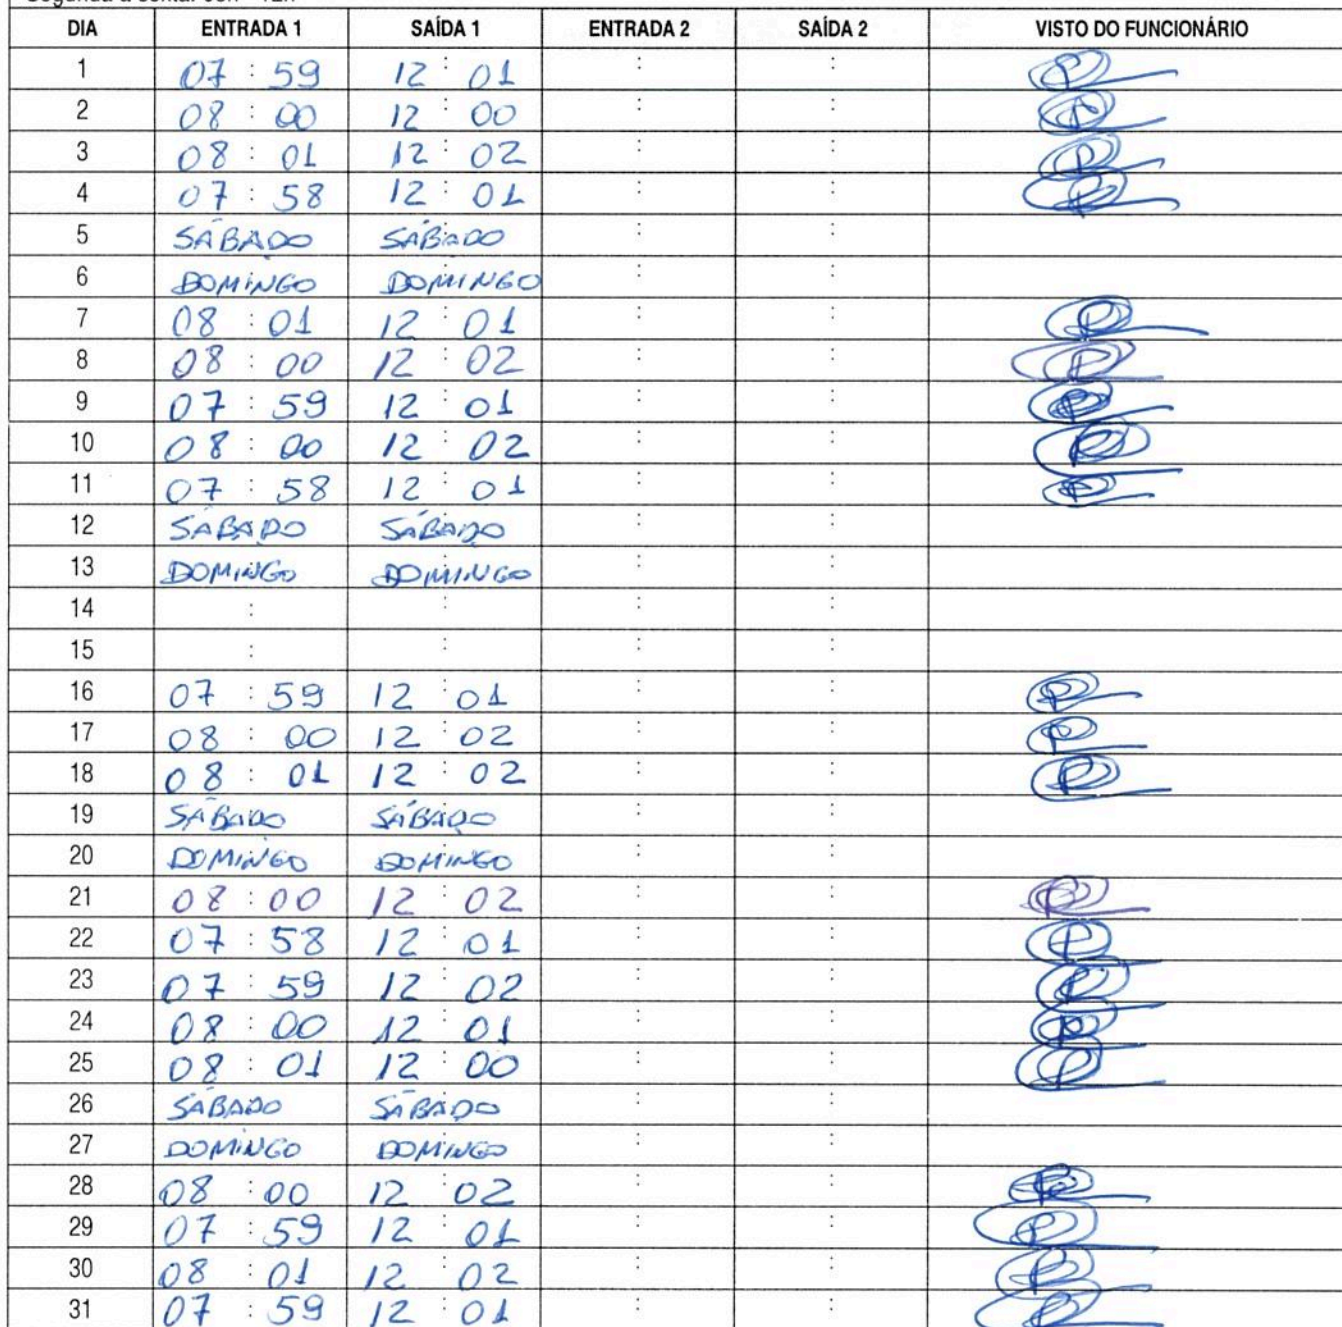 DIA ENTRADA 1 SAÍDA 1 ENTRADA 2 SAÍDA 2 VISTO DO FUNCIONÁRIO
1 07 : 59 12 : 01 : :
2 08 : 00 12 : 00 : :
3 08 : 01 12 : 02 : :
4 07 : 58 12 : 01 : :
5 SÁBADO SÁBADO : :
6 DOMINGO DOMINGO : :
7 08 : 01 12 : 01 : :
8 08 : 00 12 : 02 : :
9 07 : 59 12 : 01 : :
10 08 : 00 12 : 02 : :
11 07 : 58 12 : 01 : :
12 SÁBADO SÁBADO : :
13 DOMINGO DOMINGO : :
14 : : : :
15 : : : :
16 07 : 59 12 : 01 : :
17 08 : 00 12 : 02 : :
18 08 : 01 12 : 02 : :
19 SÁBADO SÁBADO : :
20 DOMINGO DOMINGO : :
21 08 : 00 12 : 02 : :
22 07 : 58 12 : 01 : :
23 07 : 59 12 : 02 : :
24 08 : 00 12 : 01 : :
25 08 : 01 12 : 00 : :
26 SÁBADO SÁBADO : :
27 DOMINGO DOMINGO : :
28 08 : 00 12 : 02 : :
29 07 : 59 12 : 01 : :
30 08 : 01 12 : 02 : :
31 07 : 59 12 : 01 : :